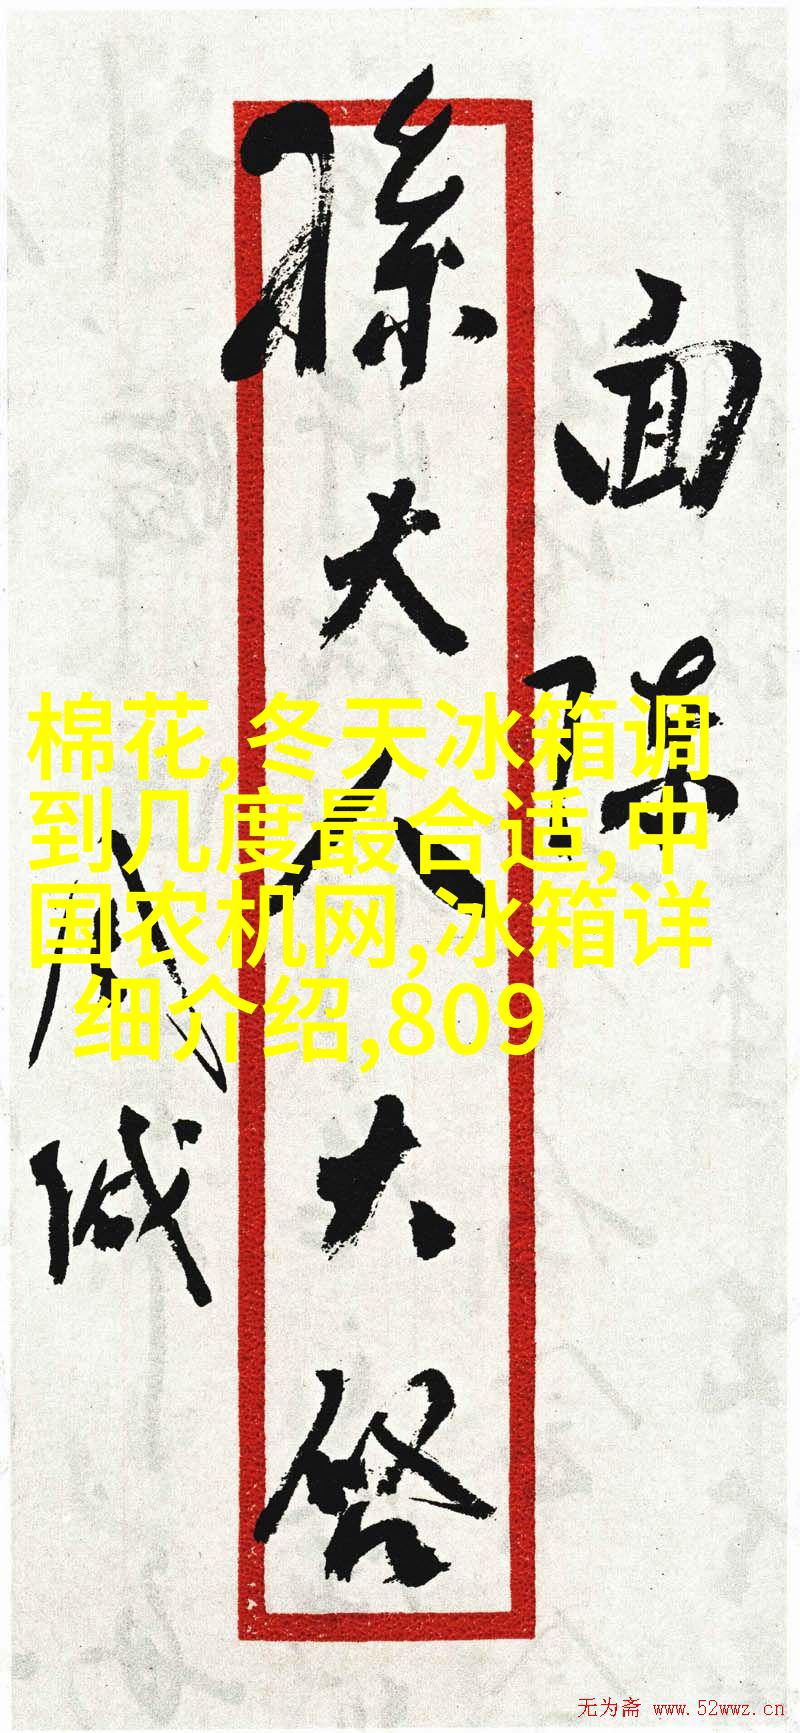 面陳
孫大人大啓
周減
棉花,冬天冰箱调
到几度最合适,中
国农机网,冰箱详
细介绍,809
无为斋 www.52wwz.cn